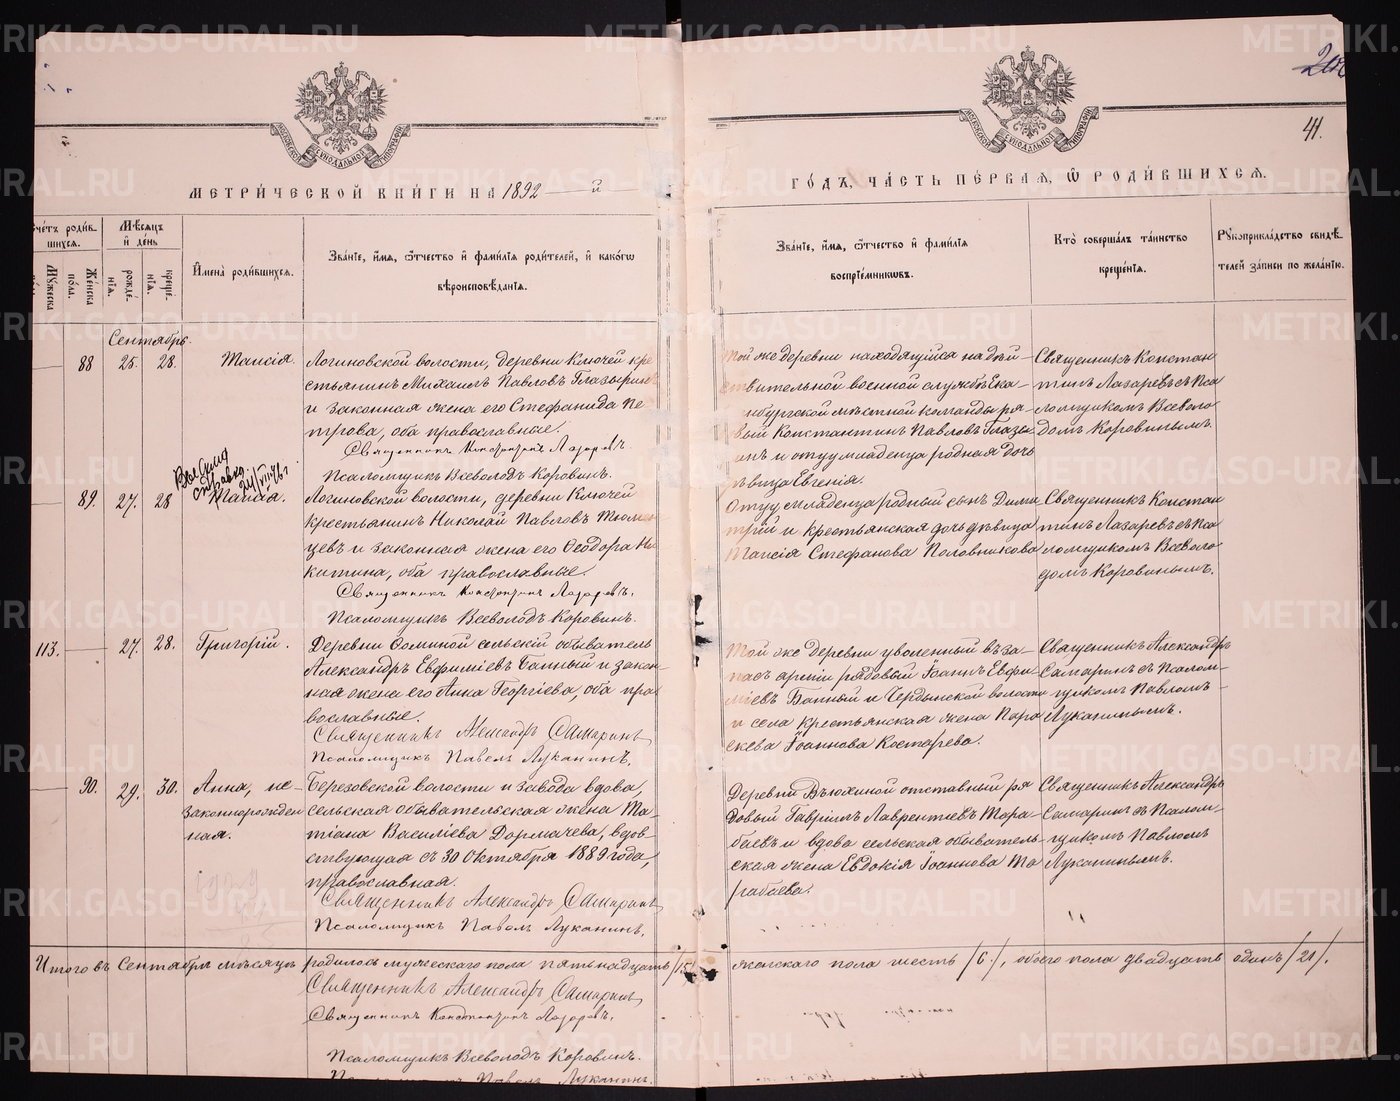 МЕТРИ́ЧЕСКОЙ КНИ́ГИ НА 1892 — й
ГО́ДЪ, ЧА́СТЬ ПЕ́РВАЯ, Ѡ РОДИ́ВШИХСЯ.
41.
Сче́тъ роди́в-
шихся.
Му́жеска
Же́нска
по́ла.
Мѣ́сяцъ
и́ де́нь
рожде́-
нїя.
креще́-
нїя.
И́мена роди́вшихся.
Зва́нїе, и́мя, ѻ́тчество и́ фами́лїя роди́телей, и́ како́гѡ
вѣроисповѣ́данїя.
Зва́нїе, и́мя, ѻ́тчество и́ фами́лїя
воспрїе́мниковъ.
Кто̀ соверша́лъ та́инство
креще́нїя.
Рꙋкоприкла́дство свидѣ́-
телей за́писи по жела́нїю.
Сентябрь
88
25. 28.
Таисія.
Логиновской волости, деревни Ключей кре
стьянинъ Михаилъ Павловъ Глазыринъ
и законная жена его Стефанида Пе
трова, оба православные.
Священникъ Константинъ Лазаревъ.
Псаломщикъ Всеволодъ Коровинъ.
Той же деревни находящійся на дѣй-
ствительной военной службѣ Ека-
нбургской мѣстной команды ря-
вый Константинъ Павловъ Глазы-
инъ и отцу младенца родная дочь
дѣвица Евгенія.
Священникъ Констан
тинъ Лазаревъ съ Пса
ломщикомъ Всеволо
домъ Коровинымъ.
Выдана
справка
24/VIII 46 г.
89.
27. 28
Таисія.
Логиновской волости, деревни Ключей
крестьянинъ Николай Павловъ Тюмен
цевъ и законная жена его Ѳеодора Ни
китина, оба православные.
Священникъ Константинъ Лазаревъ.
Псаломщикъ Всеволодъ Коровинъ.
Отцу младенца родный сынъ Дими
трій и крестьянская дочь дѣвица
Таисія Стефанова Половникова
Священникъ Констан
тинъ Лазаревъ съ Пса
ломщикомъ Всеволо
домъ Коровинымъ.
113.
27. 28.
Григорій.
Деревни Ѳоминой сельскій обыватель
Александръ Евфиміевъ Банный и закон-
ная жена его Анна Георгіева, оба пра
вославные.
Священникъ Александръ Самаринъ
Псаломщикъ Павелъ Луканинъ.
Той же деревни уволенный въ за-
пасъ арміи рядовый Іоаннъ Евфи
міевъ Банный и Чердынской волости
и села крестьянская жена Пара
скева Іоаннова Костарева.
Священникъ Александръ
Самаринъ съ Псалом-
щикомъ Павломъ
Луканинымъ.
90.
29. 30.
Анна, не-
законнорожден
ная.
Березовской волости и завода вдова,
сельская обывательская жена Та-
тіана Василіева Дормачева, вдов-
ствующая съ 30 Октября 1889 года,
православная.
Священникъ Александръ Самаринъ
Псаломщикъ Павелъ Луканинъ.
Деревни Вьюхиной отставный ря
довый Гавріилъ Лаврентіевъ Тара-
баевъ и вдова сельская обыватель-
ская жена Евдокія Іоаннова Та
рабаева.
Священникъ Александръ
Самаринъ съ Псалом-
щикомъ Павломъ
Луканинымъ.
Итого въ Сентябрѣ мѣсяцѣ родилось мужескаго пола пятьнадцать /15/
женскаго пола шесть /6/, обоего пола двадцать одинъ /21/.
Священникъ Александръ Самаринъ
Священникъ Константинъ Лазаревъ.
Псаломщикъ Всеволодъ Коровинъ.
Псаломщикъ Павелъ Луканинъ.
METRIKI.GASO-URAL.RU